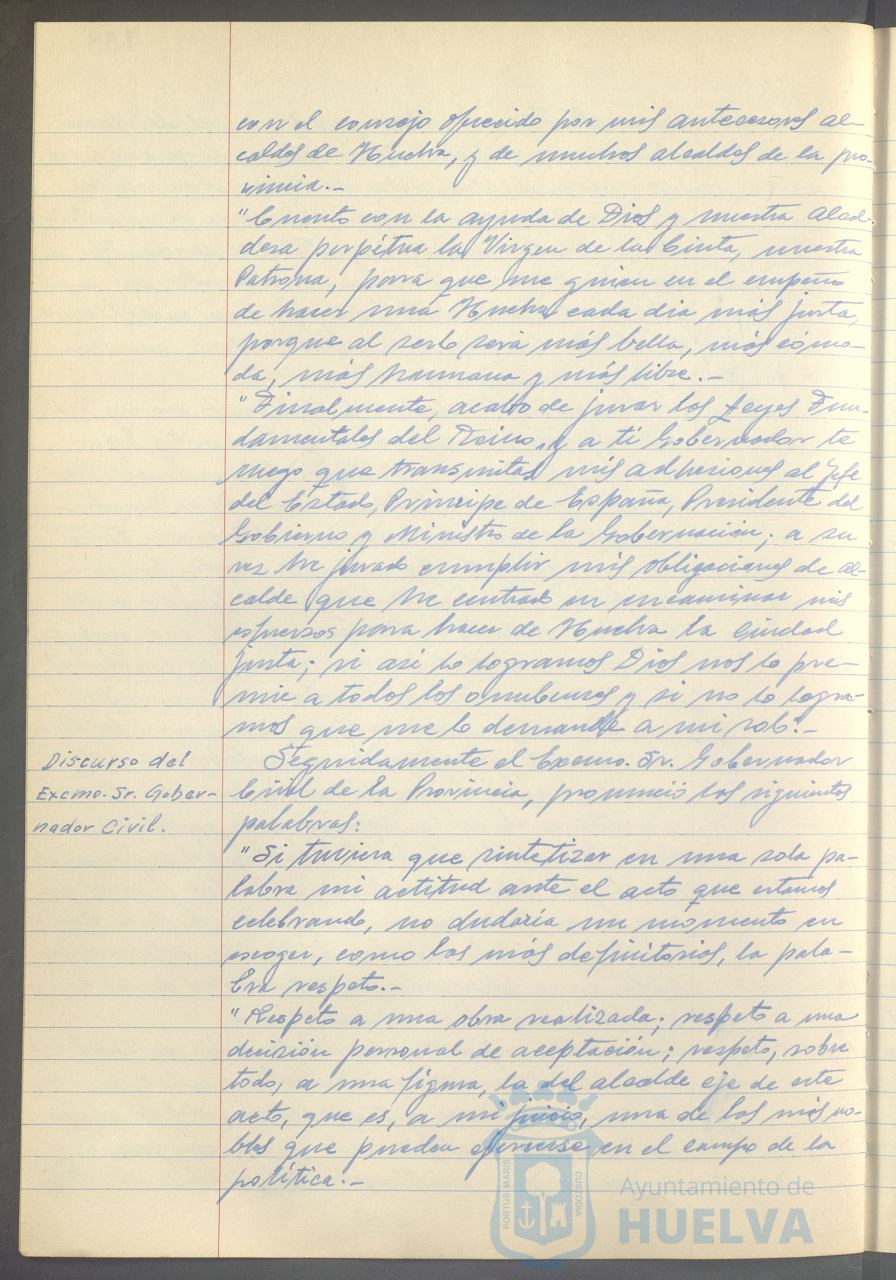 con el consejo ofrecido por mis antecesores al-
caldes de Huelva, y de muchos alcaldes de la pro-
vincia.-
"Cuento con la ayuda de Dios y nuestra Alcal-
desa perpétua la Virgen de la Cinta, nuestra
Patrona, para que me guien en el empeño
de hacer una Huelva cada dia más justa,
porque al serlo será más bella, más cómo-
da, más humana y más libre.-
"Finalmente, acabo de jurar las Leyes Fun-
damentales del Reino, y a ti Gobernador te
ruego que transmitas mis adhesiones al Jefe
del Estado, Príncipe de España, Presidente del
Gobierno y Ministro de la Gobernación; a su
vez he jurado cumplir mis obligaciones de al-
calde que he centrado en encaminar mis
esfuerzos para hacer de Huelva la Ciudad
justa; si asi lo logramos Dios nos lo pre-
mie a todos los onubenses y si no lo logra-
mos que me lo demande a mi solo".-
Discurso del
Excmo. Sr. Gober-
nador Civil.
Seguidamente el Excmo. Sr. Gobernador
Civil de la Provincia, pronunció las siguientes
palabras:
"Si tuviera que sintetizar en una sola pa-
labra mi actitud ante el acto que estamos
celebrando, no dudaría un momento en
escoger, como las más definitorias, la pala-
bra respeto.-
"Respeto a una obra realizada; respeto a una
decisión personal de aceptación; respeto, sobre
todo, a una figura, la del alcalde eje de este
acto, que es, a mi juicio, una de las más no-
bles que pueden ejercerse en el campo de la
política.-
PORTUS MARIS
CUSTODIA
Ayuntamiento de
HUELVA